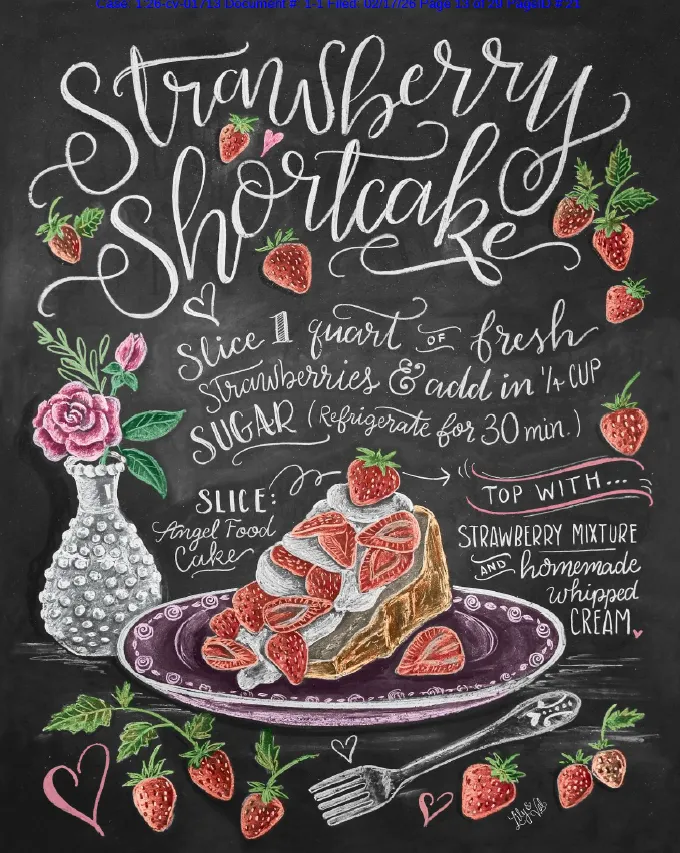 Case: 1:26-cv-01713 Document #: 1-1 Filed: 02/17/26 Page 13 of 28 PageID #:31
Strawberry
Shortcake
Slice 1 quart OF fresh
Strawberries & add in 1/4 CUP
SUGAR (Refrigerate for 30 min.)
SLICE:
Angel Food
Cake
TOP WITH...
STRAWBERRY MIXTURE
AND homemade
whipped
CREAM.
Lily & Val